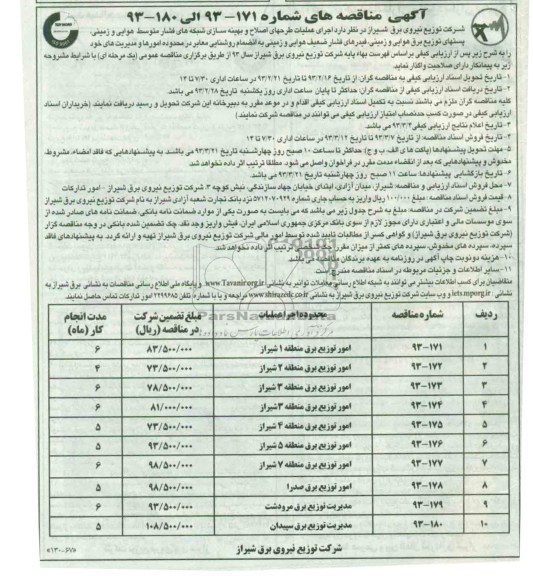 آگهی مناقصه های شماره ۱۷۱-۹۳ الی ۱۸۰-۹۳
شرکت توزیع نیروی برق شیراز در نظر دارد اجرای عملیات طرحهای اصلاح و بهینه سازی شبکه های فشار متوسط هوایی و زمینی،
پستهای توزیع برق هوایی و زمینی، فیدرهای فشار ضعیف هوایی و زمینی به انضمام روشنایی معابر در محدوده امورها و مدیریت های خود
را به شرح زیر پس از ارزیابی کیفی براساس فهرست بهاء پایه شرکت توزیع نیروی برق شیراز سال ۹۳ از طریق برگزاری مناقصه عمومی (یک مرحله ای) با شرایط مشروحه
زیر به پیمانکار دارای صلاحیت واگذار نماید.
۱- تاریخ تحویل اسناد ارزیابی کیفی به مناقصه گران: از تاریخ ۹۳/۲/۱۶ تا تاریخ ۹۳/۲/۲۱ در ساعات اداری ۷/۳۰ تا ۱۴
۲- تاریخ دریافت اسناد ارزیابی کیفی از مناقصه گران: حداکثر تا پایان ساعات اداری روز یکشنبه تاریخ ۹۳/۲/۲۸ می باشد.
کلیه مناقصه گران ملزم می باشند نسبت به تکمیل اسناد ارزیابی کیفی اقدام و در موعد مقرر به دبیرخانه این شرکت تحویل و رسید دریافت نمایند. (خریداران اسناد
ارزیابی کیفی در صورت کسب حدنصاب امتیاز ارزیابی کیفی می توانند در مناقصه شرکت نمایند.)
۳- تاریخ اعلام نتایج ارزیابی کیفی ۹۳/۳/۴ می باشد.
۴- تاریخ فروش اسناد مناقصه: از تاریخ ۹۳/۳/۷ تا تاریخ ۹۳/۳/۱۲ در ساعات اداری ۷/۳۰ تا ۱۴
۵- مهلت تحویل پیشنهادها (پاکت های الف، ب و ج) حداکثر تا ساعت ۱۰ صبح روز چهارشنبه تاریخ ۹۳/۳/۲۱ می باشند. به پیشنهادهایی که فاقد امضاء، مشروط،
مخدوش و پیشنهادهایی که بعد از انقضاء مدت مقرر در فراخوان واصل می شود، مطلقا ترتیب اثر داده نخواهد شد.
۶- تاریخ بازگشایی پیشنهادها: ساعت ۱۱ صبح روز چهارشنبه تاریخ ۹۳/۳/۲۱ می باشد.
۷- محل فروش اسناد ارزیابی و مناقصه: شیراز، میدان آزادی، ابتدای خیابان جهاد سازندگی، نبش کوچه ۳، شرکت توزیع نیروی برق شیراز - امور تدارکات
۸- قیمت فروش اسناد مناقصه: مبلغ ۱۰۰/۰۰۰ ریال واریز به حساب جاری شماره نزد بانک تجارت شعبه آزادی شیراز به نام شرکت توزیع نیروی برق شیراز
۹- مبلغ تضمین شرکت در مناقصه: مبلغ به شرح جدول زیر می باشد که می بایست به صورت یکی از موارد ضمانت نامه بانکی، ضمانت نامه های صادر شده از
سوی موسسات مالی و اعتباری دارای مجوز لازم از سوی بانک مرکزی جمهوری اسلامی ایران، فیش واریز وجه نقد، چک تضمین شده بانکی در وجه مناقصه گزار
(شرکت توزیع نیروی برق شیراز) و گواهی کسر از مطالبات تایید شده توسط امور مالی شرکت توزیع نیروی برق شیراز تهیه و ارائه گردد. به پیشنهادهای فاقد
سپرده، سپرده های مخدوش، سپرده های کمتر از میزان مقرر و ترتیب اثر داده نخواهد شد.
۱۰- هزینه دو نوبت چاپ آگهی در روزنامه به عهده برندگان مناقصه می باشد.
۱۱- سایر اطلاعات و جزئیات مربوطه در اسناد مناقصه مندرج است.
متقاضیان برای کسب اطلاعات بیشتر می توانند به شبکه اطلاع رسانی معاملات توانیر به نشانی: www.Tavanir.org.ir و پایگاه ملی اطلاع رسانی مناقصات به نشانی
iets.mporg.ir و وب سایت شرکت توزیع نیروی برق شیراز به نشانی www.shirazedc.co.ir مراجعه و یا با شماره تلفن امور تدارکات تماس حاصل نمایند.
ردیف شماره مناقصه محدوده اجرا عملیات مبلغ تضمین شرکت در مناقصه (ریال) مدت انجام کار (ماه)
۱ ۹۳-۱۷۱ امور توزیع برق منطقه ۱ شیراز ۸۳/۵۰۰/۰۰۰ ۶
۲ ۹۳-۱۷۲ امور توزیع برق منطقه ۲ شیراز ۷۳/۵۰۰/۰۰۰ ۴
۳ ۹۳-۱۷۳ امور توزیع برق منطقه ۳ شیراز ۷۸/۵۰۰/۰۰۰ ۶
۴ ۹۳-۱۷۴ امور توزیع برق منطقه ۳ شیراز ۸۱/۰۰۰/۰۰۰ ۶
۵ ۹۳-۱۷۵ امور توزیع برق منطقه ۴ شیراز ۷۳/۵۰۰/۰۰۰ ۵
۶ ۹۳-۱۷۶ امور توزیع برق منطقه ۵ شیراز ۹۳/۵۰۰/۰۰۰ ۵
۷ ۹۳-۱۷۷ امور توزیع برق منطقه ۷ شیراز ۹۸/۵۰۰/۰۰۰ ۶
۸ ۹۳-۱۷۸ امور توزیع برق صدرا ۹۸/۵۰۰/۰۰۰ ۵
۹ ۹۳-۱۷۹ مدیریت توزیع برق مرودشت ۹۳/۵۰۰/۰۰۰ ۶
۱۰ ۹۳-۱۸۰ مدیریت توزیع برق سپیدان ۱۰۸/۵۰۰/۰۰۰ ۵
شرکت توزیع نیروی برق شیراز
«۱۳۰۰۶۷»